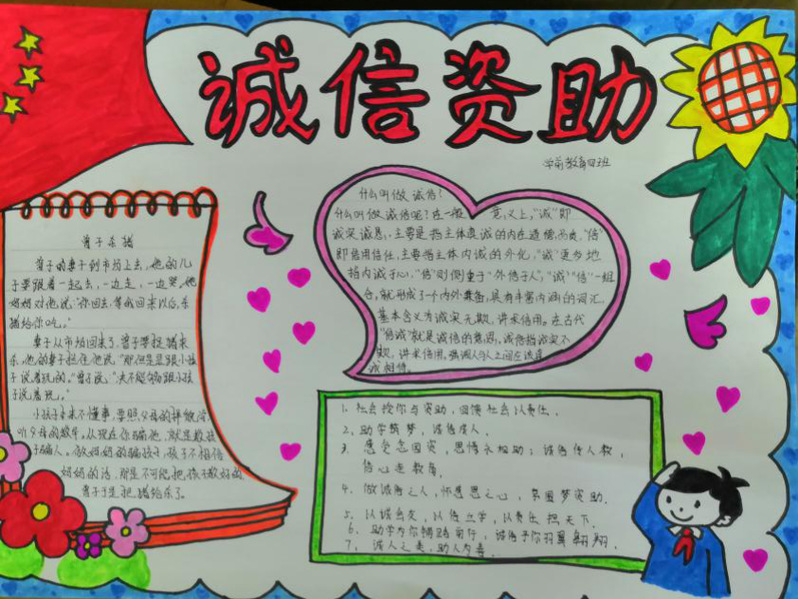 诚信资助
学前教育四班
曾子杀猪
曾子的妻子到市场上去,他的儿
子要跟着一起去,一边走,一边哭。他
妈妈对他说:“你回去,等我回来以后,杀
猪给你吃。”
妻子从市场回来了,曾子要捉猪来
杀,他的妻子拦住他说:“那不过是跟小孩
子说着玩的。”曾子说:“决不能够跟小孩
子说着玩。”
小孩子本来不懂事,要照父母的样做,
听父母的教导。从现在你骗他,就是教孩
子骗人。做妈妈的骗孩子,孩子不相信
妈妈的话,那是不可能把孩子教好的。
曾子于是把猪给杀了。
什么叫做诚信?
什么叫做诚信呢?在一般意义上,“诚”即
诚实诚恳,主要是指主体真诚的内在道德品质,“信”
即信用信任,主要指主体内诚的外化,“诚”更多地
指内诚于心,“信”则侧重于“外信于人”,“诚”“信”一组
合,就形成了一个内外兼备,具有丰富内涵的词汇,
基本含义为诚实无欺,讲求信用。在古代
“信诚”就是诚信的意思,诚信指诚实不
欺,讲求信用,强调人与人之间应该真
诚相待。
1、社会授你与资助,回馈社会以责任。
2、助学筑梦,诚信信人。
3、感受志国资,恩情永相助;诚信传人教,
信心走教育。
4、做诚信之人,怀感恩之心,家国梦资助。
5、以诚会友,以信立学,以责任担天下。
6、助学为你铺路前行,诚信予你羽翼翱翔。
7、诚人之美,助人为善。